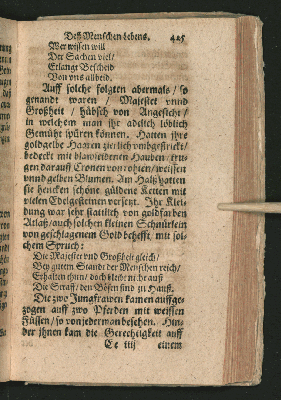 Deß Menschen Lebens. 425
Wer wissen will
Der Sachen viel/
Erlange Bescheid
Von uns allbeid.
Auff solche folgten abermals/ so
genandt waren/ Majestet vnnd
Großheit/ hübsch von Angesicht/
in welchem man ihr adelich löblich
Gemüht spüren können. Hatten ihre
goldgelbe Haaren zierlich vmbgestrickt/
bedeckt mit blawseidenen Hauben/ tru-
gen darauff Cronen von rohten/ weissen
vnnd gelben Blumen. Am Halß hatten
sie hencken schöne güldene Ketten mit
vielen Edelgesteinen versetzt. Ihr Klei-
dung war sehr stattlich von goldfarben
Atlaß/ auch solchen kleinen Schnürlein
von geschlagenem Gold besefft, mit sol-
chem Spruch:
Die Majestet vnd Großheit gleich/
Bey gutem Stande der Menschen reich/
Erhalten ihn/ doch bleibt nit auß
Die Straff/ den Bösen sind zu Hauß.
Die zwo Jungfrawen kamen auffge-
zogen auff zwo Pferden mit weissen
Füssen/ so von jederman besehen. Hin-
der ihnen kam die Gerechtigkeit auff
Ee iiij einem